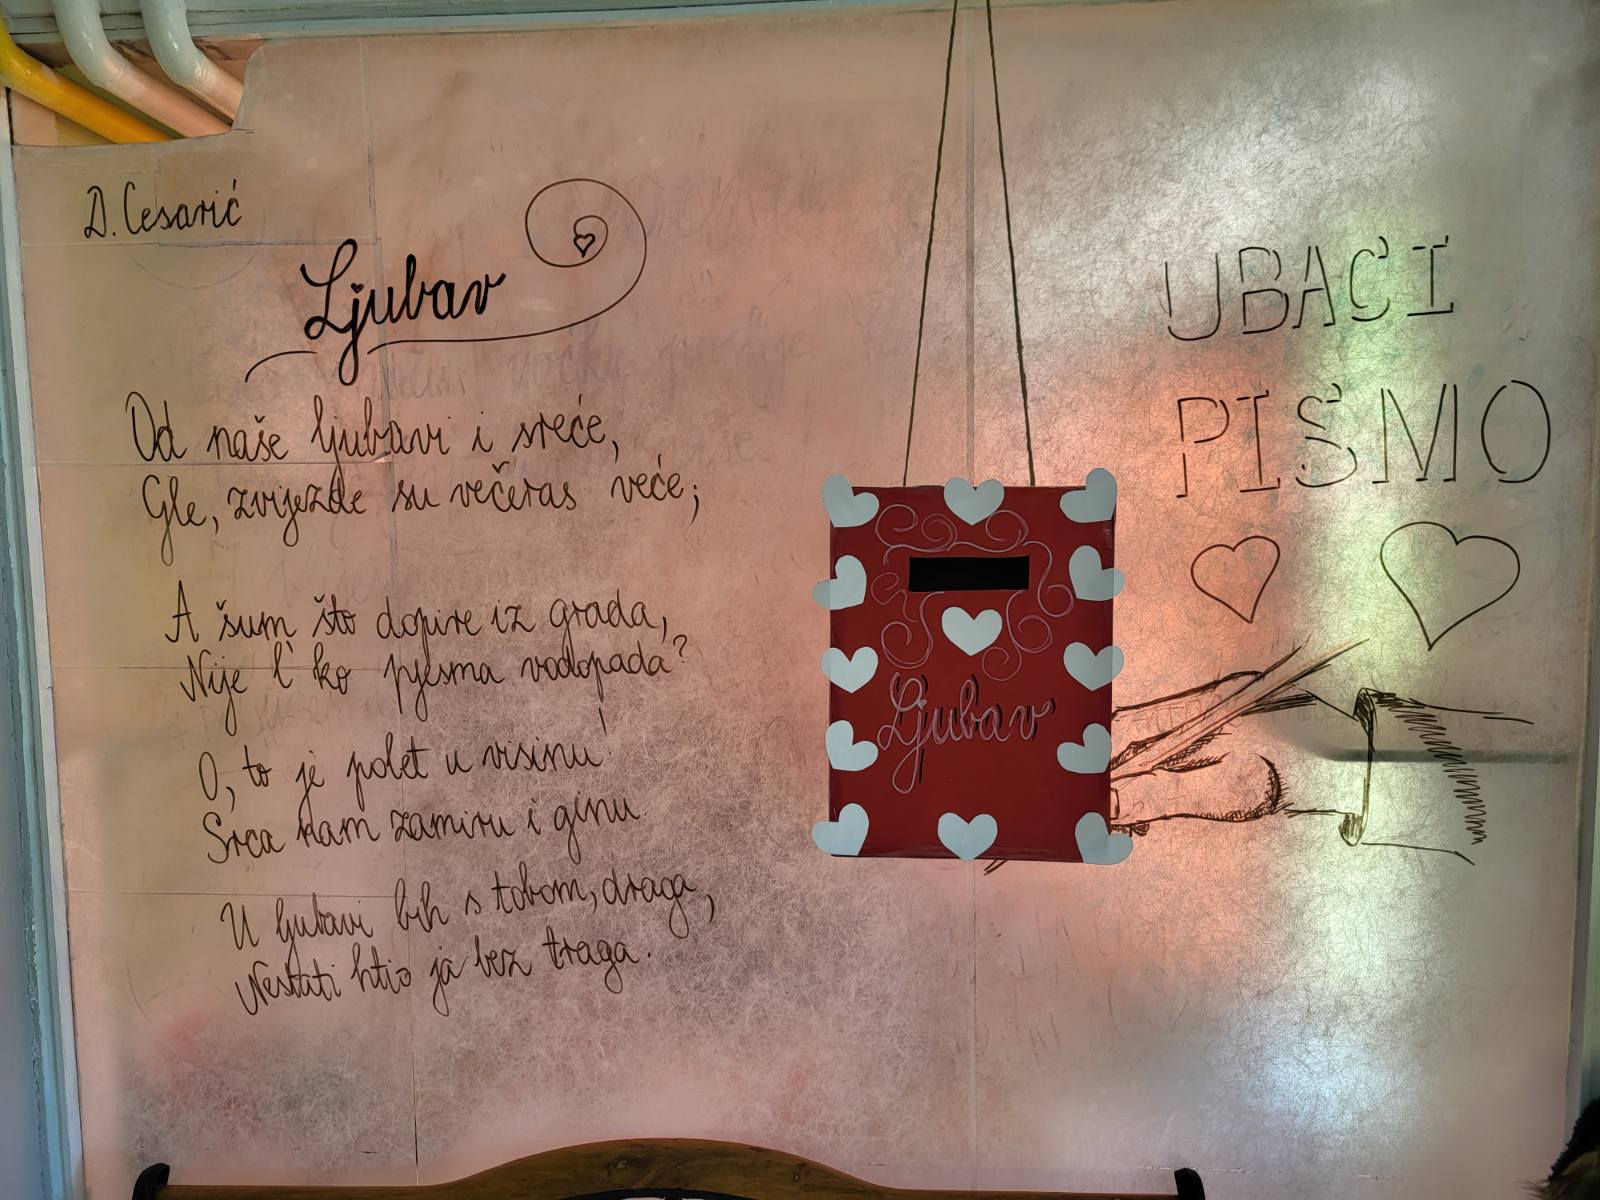 D. Cesarić
Ljubav
Od naše ljubavi i sreće,
Gle, zvijezde su večeras veće;
A šum što dopire iz grada,
Nije l' ko pjesma vodopada?
O, to je polet u visinu!
Srca nam zamiru i ginu.
U ljubavi bih s tobom, draga,
Nestati htio ja bez traga.
Ljubav
UBACI
PISMO